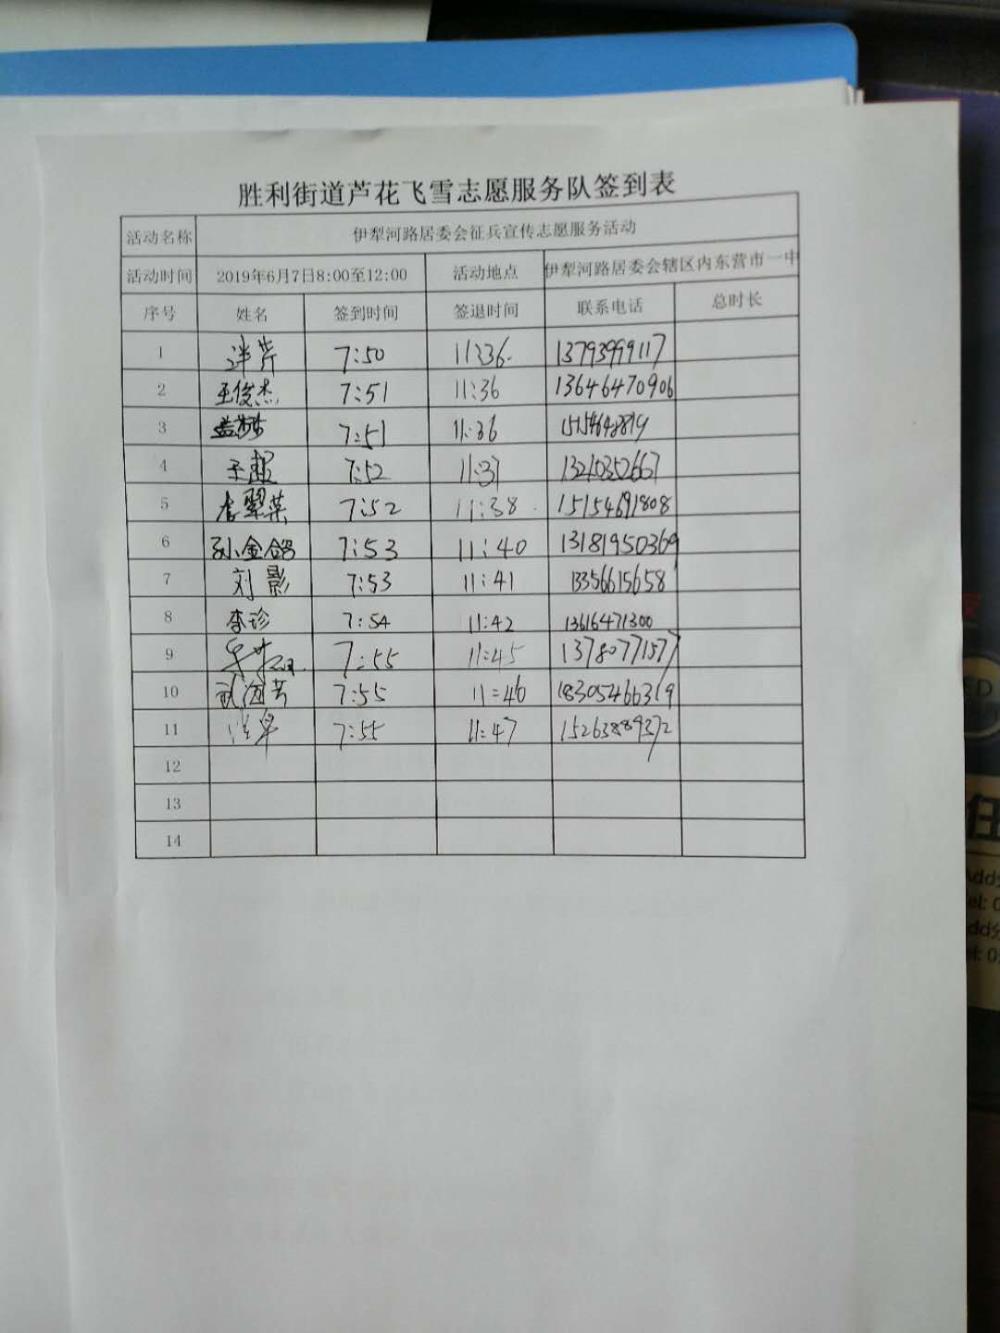 胜利街道芦花飞雪志愿服务队签到表
活动名称 伊犁河路居委会征兵宣传志愿服务活动
活动时间 2019年6月7日8:00至12:00 活动地点 伊犁河路居委会辖区内东营市一中
序号 姓名 签到时间 签退时间 联系电话 总时长
1 7:50 11:36 13793999117
2 王俊杰 7:51 11:36 13646470906
3 7:51 11:36
4 王超 7:52 11:37 13210352667
5 7:52 11:38 15154691808
6 7:53 11:40 13181950369
7 刘影 7:53 11:41 13356615658
8 李珍 7:54 11:42 13616471300
9 7:55 11:45 13780771577
10 武海芳 7:55 11:46 18305466319
11 7:55 11:47 15263889372
12
13
14
任